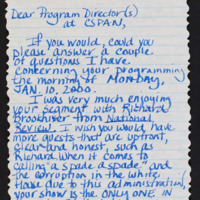 Dear Program Director(s)
at CSPAN,
If you would, could you
please answer a couple
of questions I have
concerning your programming
the morning of MONDAY,
JAN. 10, 2000.
I was very much enjoying
your segment with Richard
Brookhiser from National
Review. I wish you would have
more guests that are upfront,
clear and honest, such as
Richard. When it comes to
calling "a spade a spade" and
the corruption in the White
House due to this administration,
your show is the ONLY ONE IN